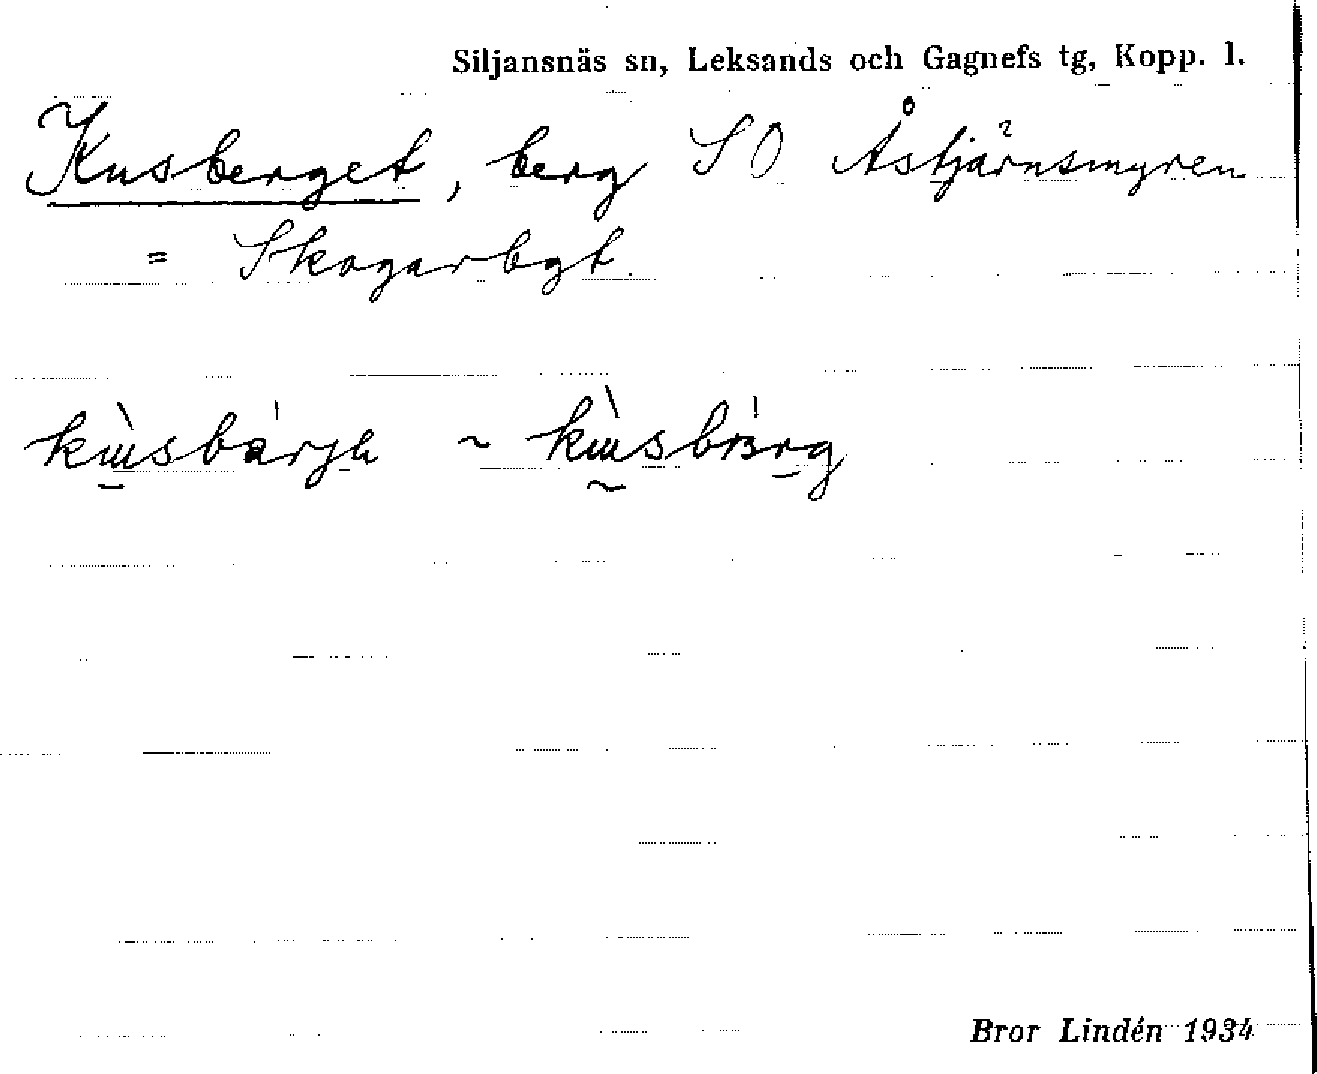 Siljansnäs sn, Leksands och Gagnefs tg, Kopp. l.
Kusberget, berg SO Åstjärnsmyren
= Skogarbgt.
~
Bror Lindén 1934